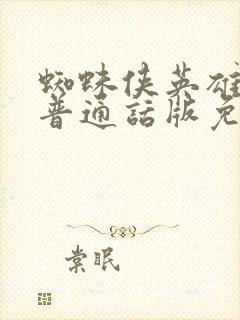 蜘蛛侠英雄
普通話版免
棠眠